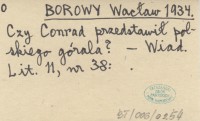 0
BOROWY Wacław 1934.
Czy Conrad przedstawił pol-
skiego górala? — Wiad.
Lit. 11, nr 38: .